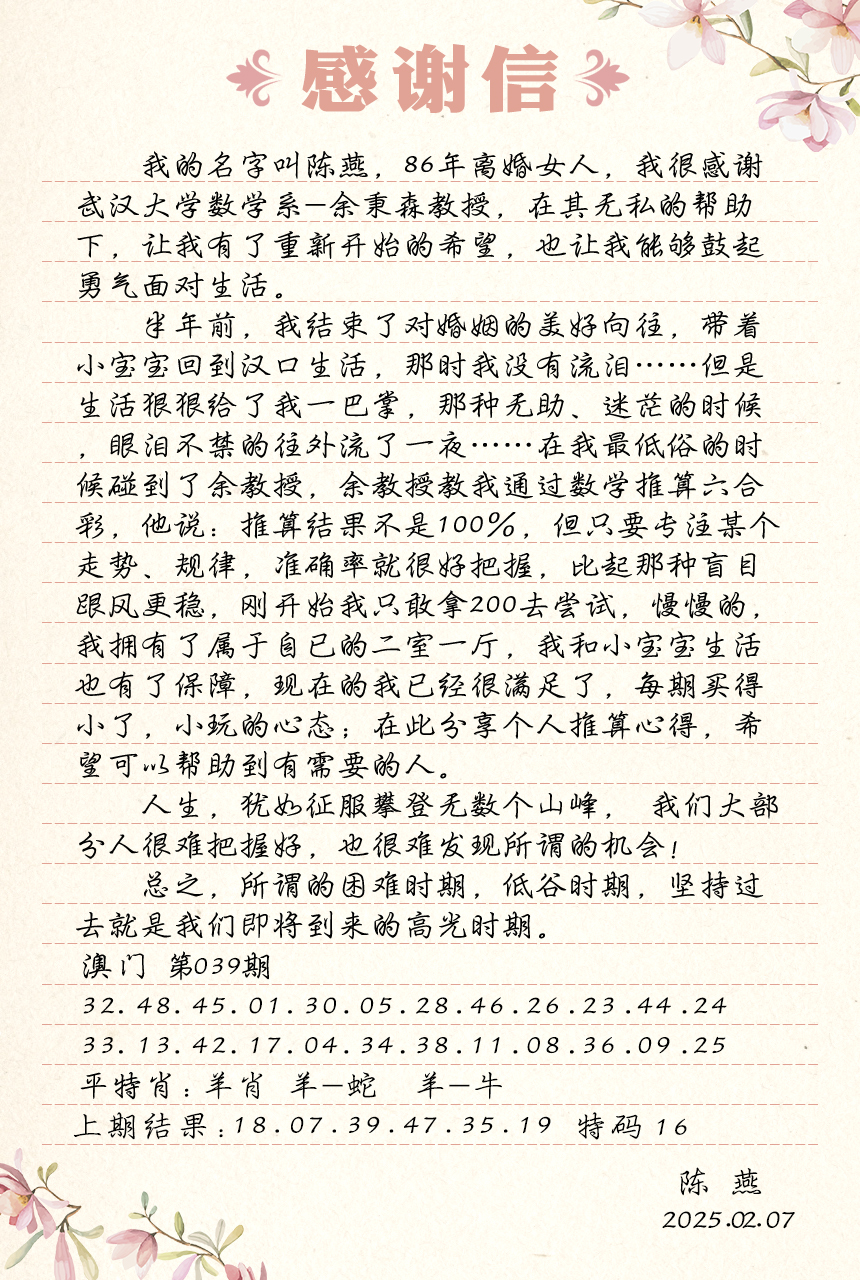 感谢信
我的名字叫陈燕，86年离婚女人，我很感谢
武汉大学数学系—余秉森教授，在其无私的帮助
下，让我有了重新开始的希望，也让我能够鼓起
勇气面对生活。
半年前，我结束了对婚姻的美好向往，带着
小宝宝回到汉口生活，那时我没有流泪……但是
生活狠狠给了我一巴掌，那种无助、迷茫的时候
，眼泪不禁的往外流了一夜……在我最低俗的时
候碰到了余教授，余教授教我通过数学推算六合
彩，他说：推算结果不是100%，但只要专注某个
走势、规律，准确率就很好把握，比起那种盲目
跟风更稳，刚开始我只敢拿200去尝试，慢慢的，
我拥有了属于自已的二室一厅，我和小宝宝生活
也有了保障，现在的我已经很满足了，每期买得
小了，小玩的心态；在此分享个人推算心得，希
望可以帮助到有需要的人。
人生，犹如征服攀登无数个山峰， 我们大部
分人很难把握好，也很难发现所谓的机会！
总之，所谓的困难时期，低谷时期，坚持过
去就是我们即将到来的高光时期。
澳门 第039期
32.48.45.01.30.05.28.46.26.23.44.24
33.13.42.17.04.34.38.11.08.36.09.25
平特肖：羊肖 羊—蛇 羊—牛
上期结果：18.07.39.47.35.19 特码 16
陈 燕
2025.02.07